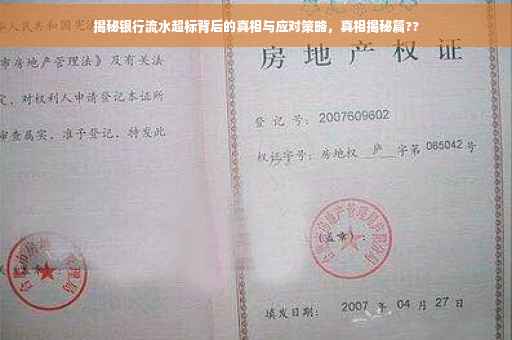 揭秘银行流水超标背后的真相与应对策略，真相揭秘篇??
人民共和国宪
市房地产管理法》及有关法
定，对权利人申请登记本证所
审查属实，准予登记，特发此
房地产权证
登记号：2007609602
权证字号：房地权 庐 字第 085042 号
(盖章)：
填发日期：2007 年 04 月 27 日